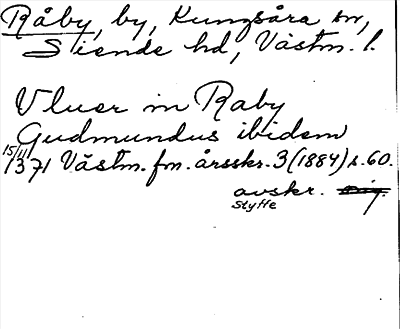 Råby, by, Kungsåra sn,
Siende hd, Västm. l.
Vluer in Raby
Gudmundus ibidem
15/11 1371 Västm. fm. årsskr. 3 (1884) s. 60.
avskr. orig.
Styffe